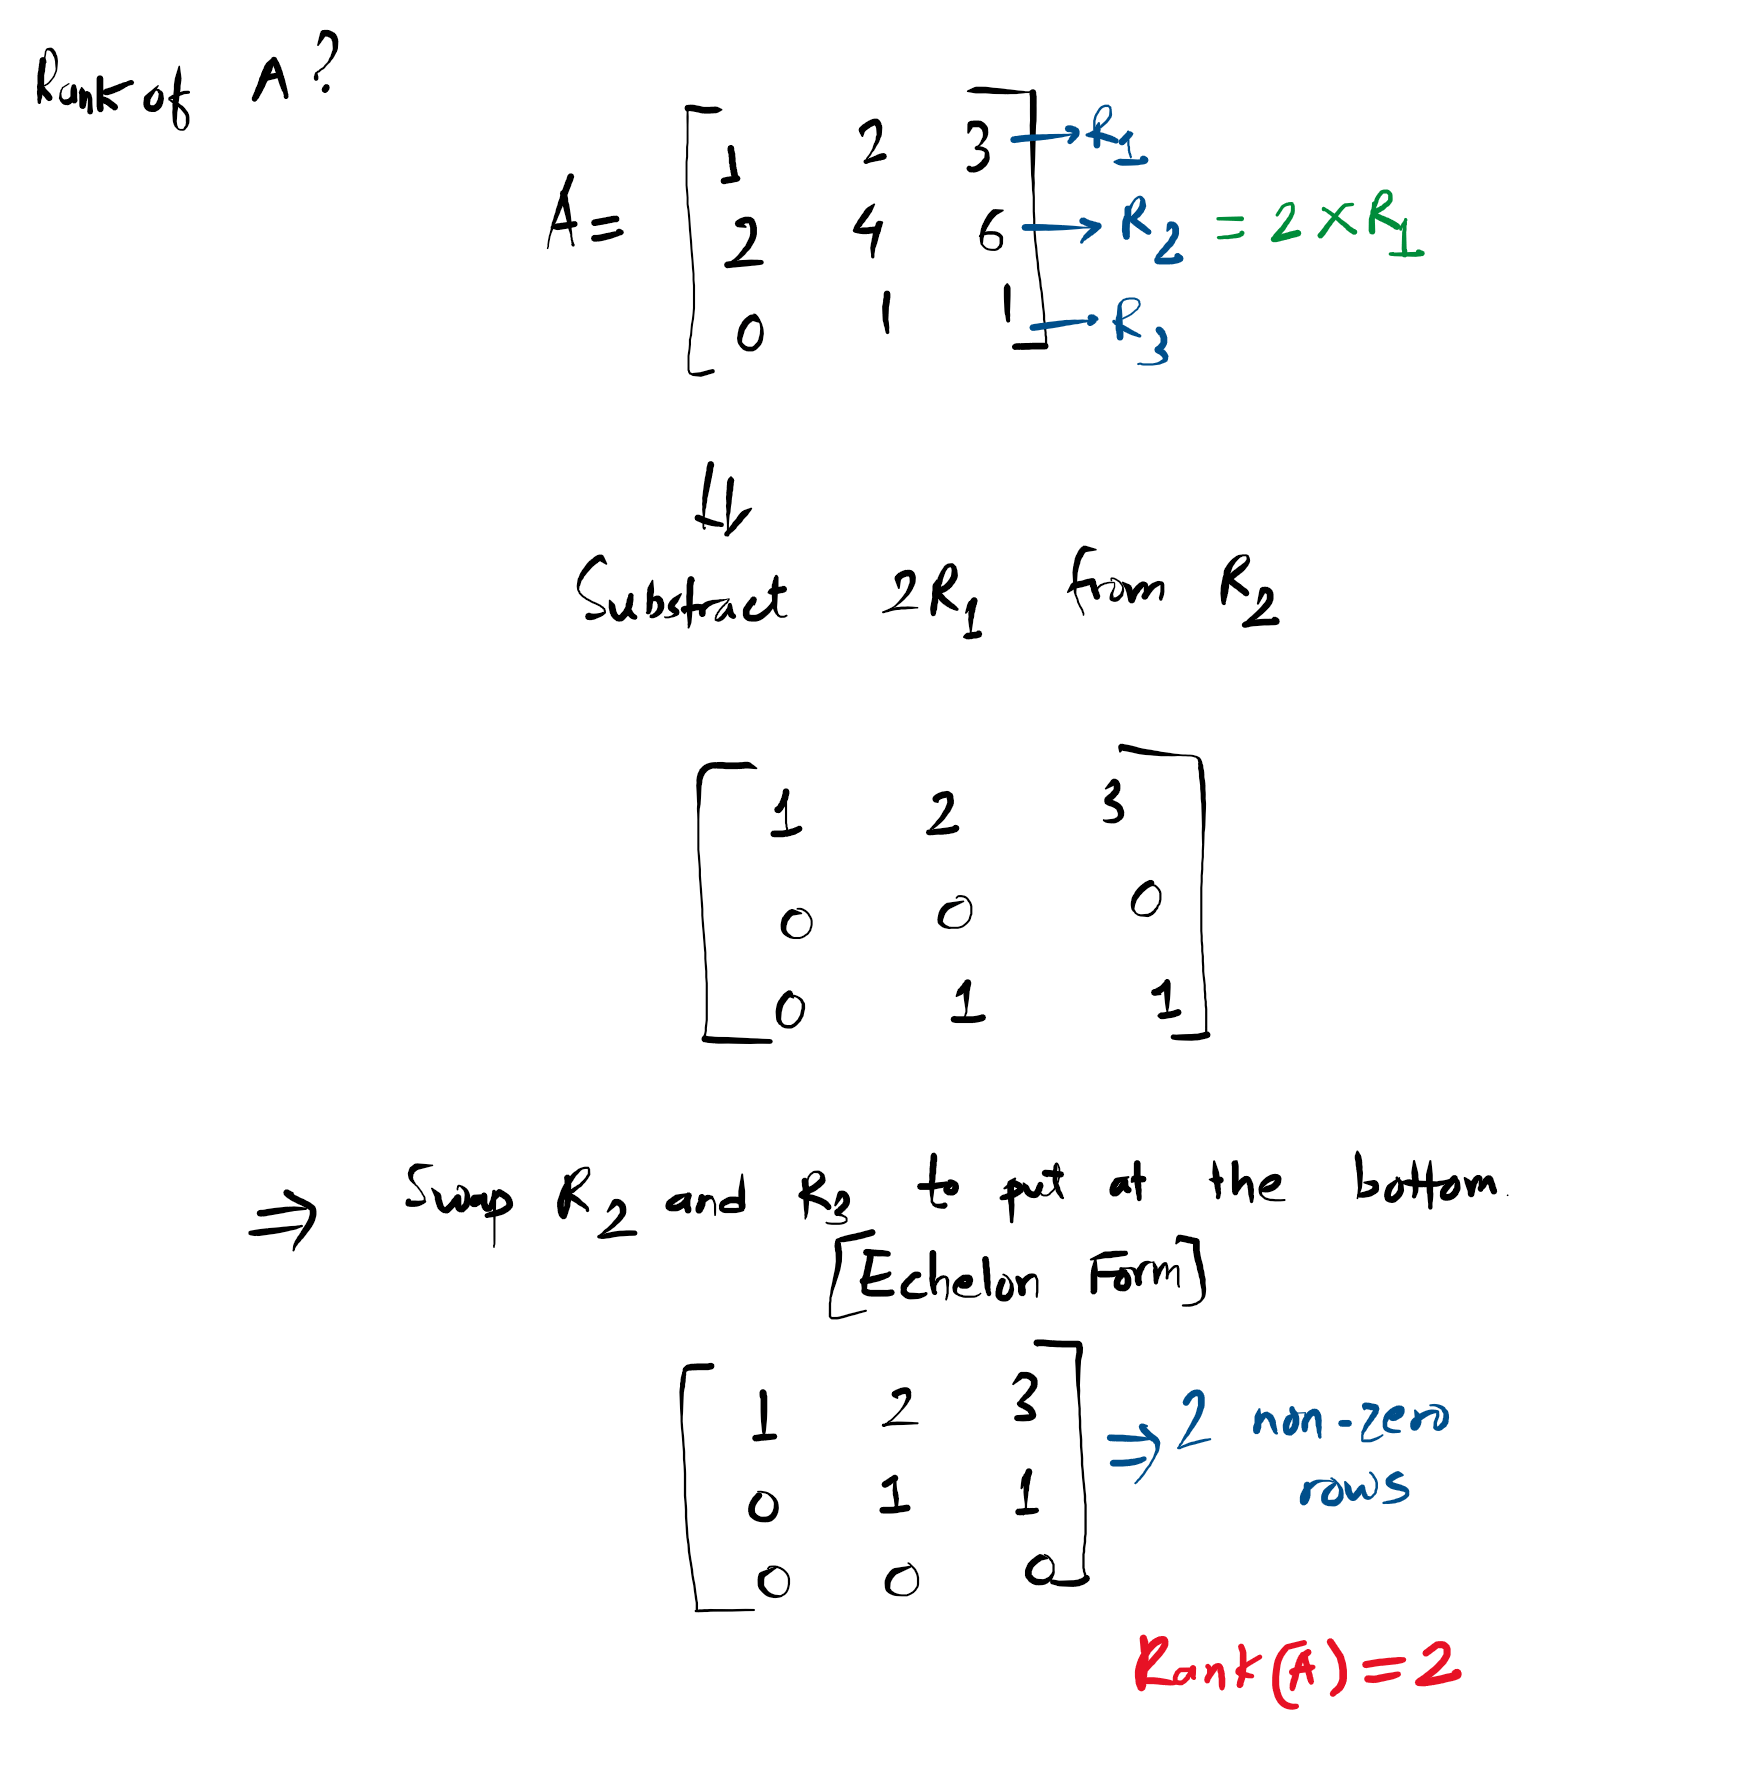 Rank of A?
A = [ 1 2 3 → R1
2 4 6 → R2 = 2 × R1
0 1 1 ] → R3
⇓
Substract 2R1 from R2
[ 1 2 3
0 0 0
0 1 1 ]
⇒ Swap R2 and R3 to put at the bottom.
[Echelon Form]
[ 1 2 3
0 1 1
0 0 0 ] ⇒ 2 non-zero
rows
Rank(A) = 2